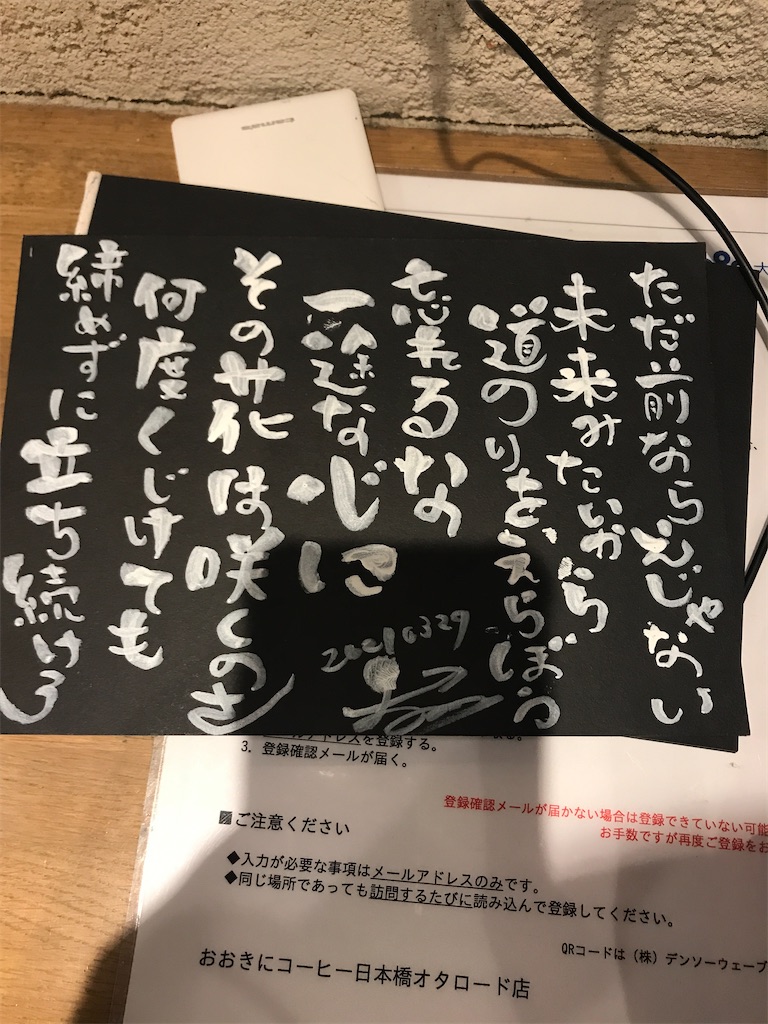 ただ前ならえじゃない
未来みたいから
道のりをえらぼう
忘れるなの
一途な心に
その花は咲くのさ
何度くじけても
締めずに立ち続けろ
20210329
メールアドレスを登録する。
3. 登録確認メールが届く。
登録確認メールが届かない場合は登録できていない可能
お手数ですが再度ご登録をお
ご注意ください
◆入力が必要な事項はメールアドレスのみです。
◆同じ場所であっても訪問するたびに読み込んで登録してください。
QRコードは(株)デンソーウェーブ
おおきにコーヒー日本橋オタロード店